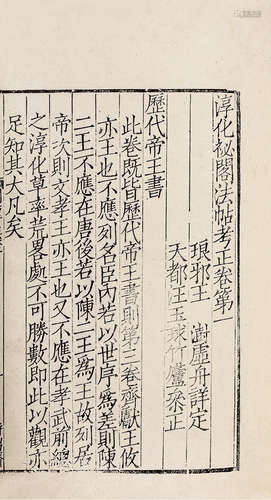 淳化秘閣法帖考正卷第一
琅邪王　澍虛舟詳定
天都汪玉球竹廬叅正
歷代帝王書
此卷既皆歷代帝王書則第三卷齊獻王攸
亦王也不應列名臣內若以世序爲差則陳
二王不應在唐後若以陳二王爲王故列居
帝次則文孝王亦王也又不應在孝武前總
之淳化草率荒畧處不可勝數即此以觀亦
足知其大凡矣